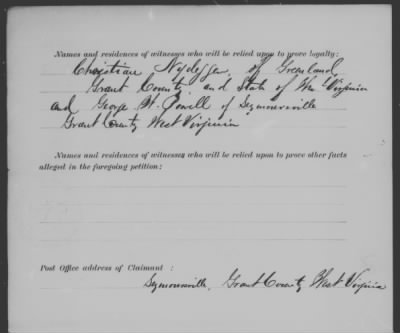 Names and residences of witnesses who will be relied upon to prove loyalty:
Christian Nydegger, of Greenland,
Grant County and State of West Virginia
and George W. Powell of Seymoursville
Grant County West Virginia
Names and residences of witnesses who will be relied upon to prove other facts
alleged in the foregoing petition:
Post Office address of Claimant :
Seymoursville, Grant County West Virginia